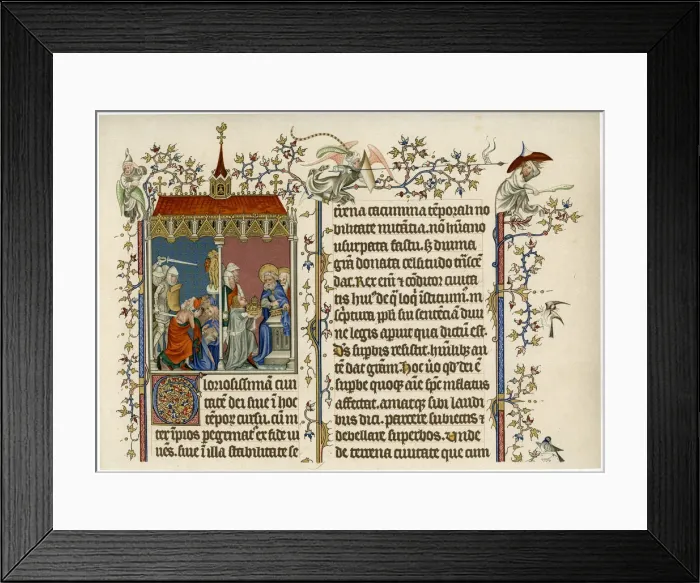 Gloriosissimā ciui
tatē dei siue ī hoc
tēpoꝝ cursu. cū in
ter īpios pegrinat̉ ex fide ui
uēs. siue ī illa stabilitate se
t̄rena cacumina tēporali mo
bilitate nutātia. nō hūano
usurpata fastu. ꝫ diuina
grā donata celsitudo trāscē
dat. Rex eniī ⁊ cōditor ciuita
tis huiꝰ de q̄ loq̄ īstituimꝰ. in
sc̄ptura ppl̄i sui sentēciā diui
ne legis apiuit qua dictū est.
Dꝰ supbis resistit. hūilibꝫ au
tē dat grām. hoc ūo qd̄ dei ē
supbe quoqꝫ aīe spc̄ inflatus
affectat. amatqꝫ sibi ī laudi
bus dici. parcere subiectis ⁊
debellare superbos. unde
de terrena ciuitate que cum